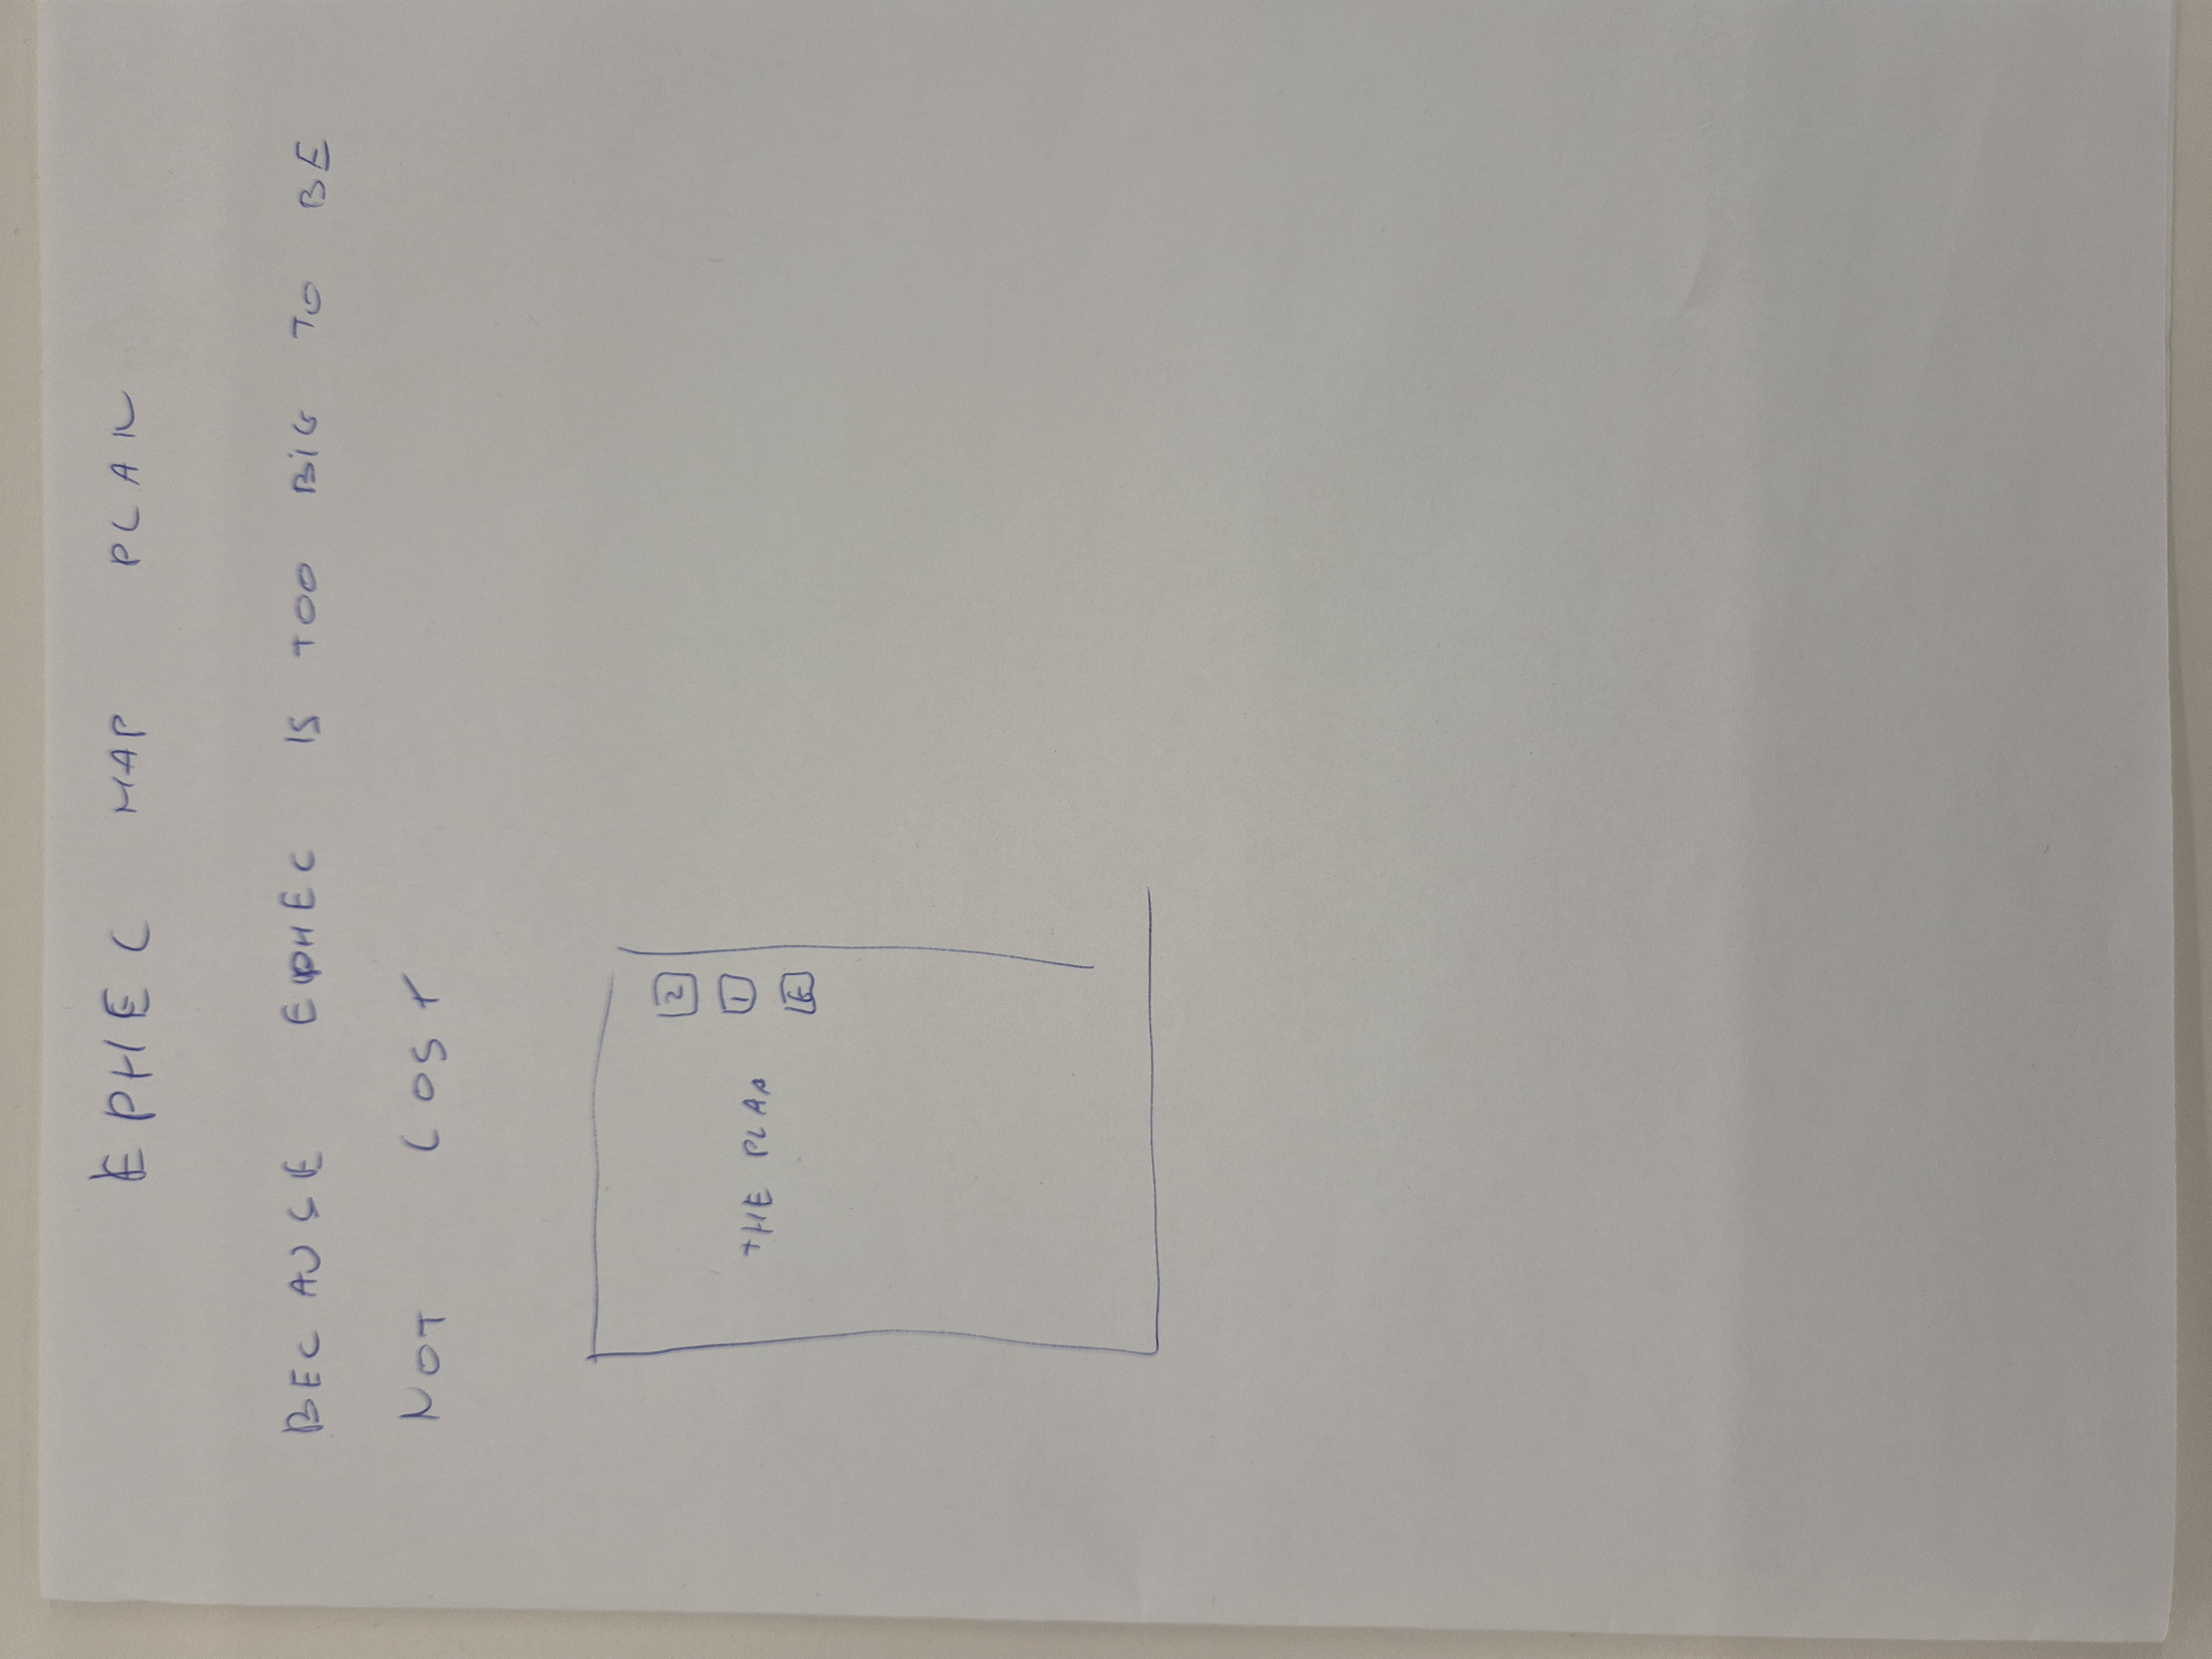 EPHEC MAP PLAN
BECAUSE EPHEC IS TOO BIG TO BE
NOT LOST
2
THE PLAN
1
E